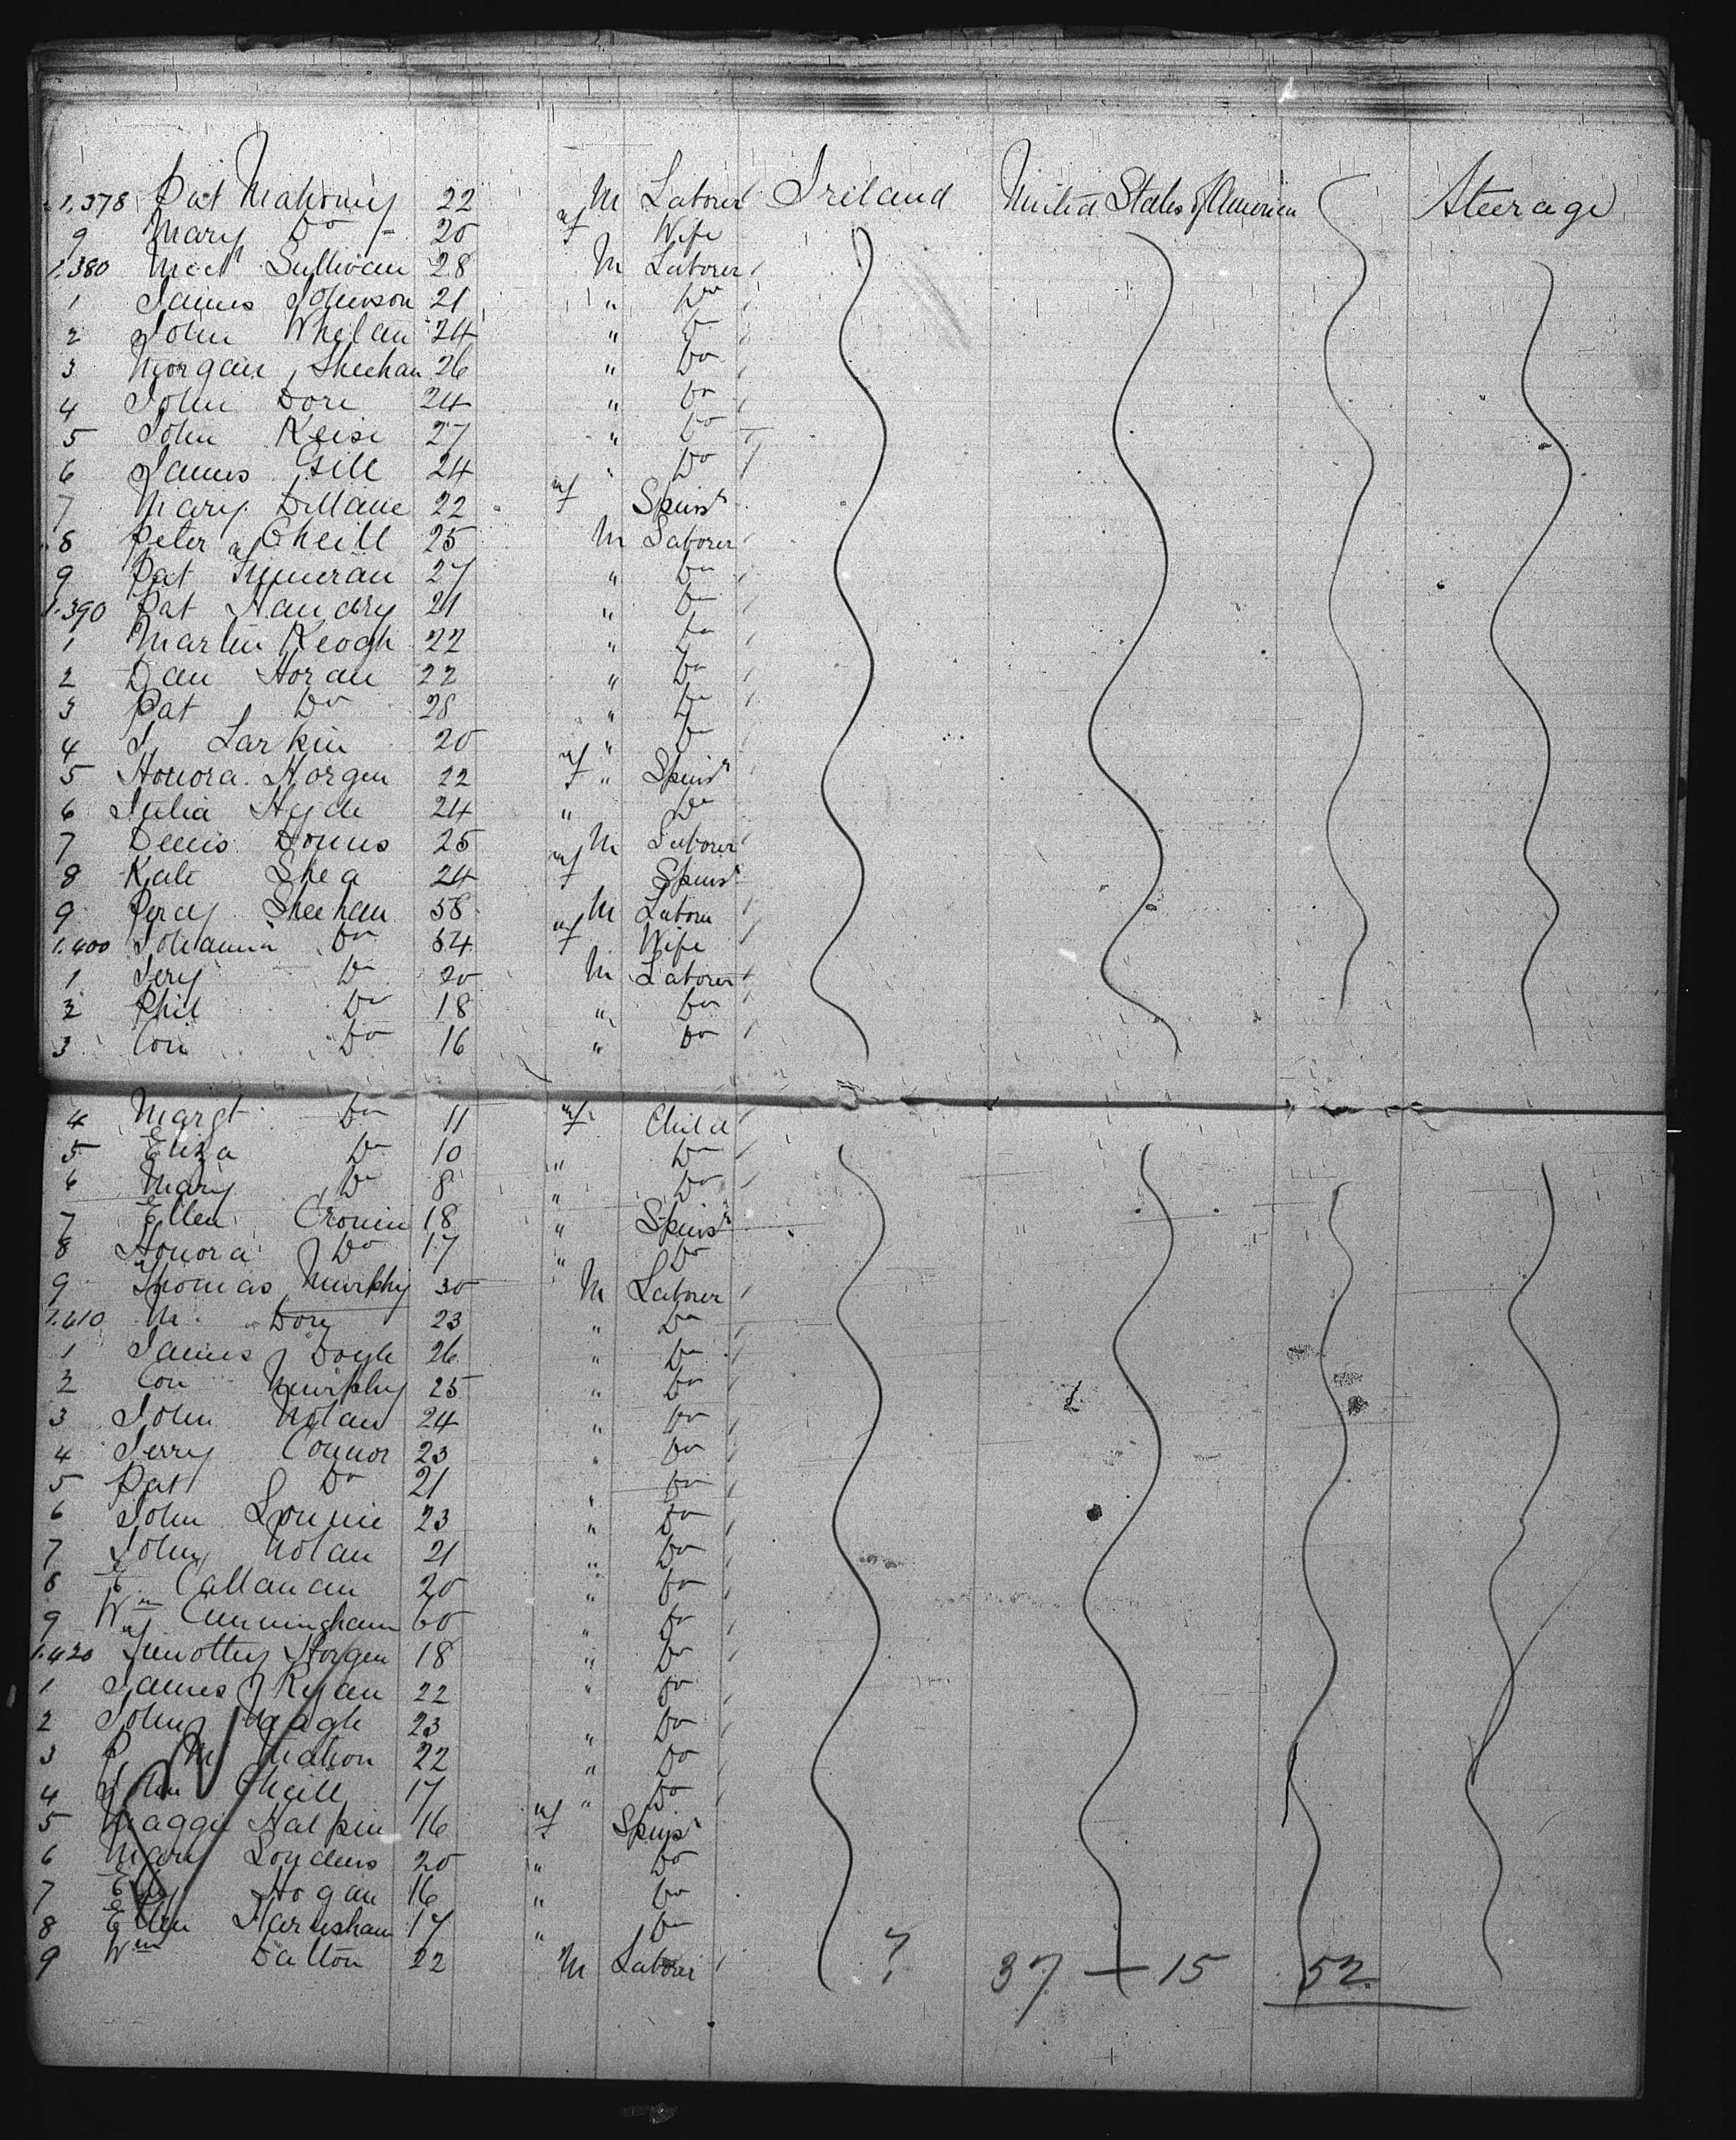 1,378 Pat Mahony 22 M Laborer Ireland United States of America Steerage
9 Mary Do 20 f Wife
1,380 Mich Sullivan 28 M Laborer
1 James Johnson 21 " Do
2 John Whelan 24 " Do
3 Morgan Sheehan 26 " Do
4 John Dore 24 " Do
5 John Keise 27 " Do
6 James Gill 24 " Do
7 Mary Dillane 22 f Spinsr
8 Peter O'Neill 25 M Laborer
9 Pat 27 " Do
1.390 Pat 21 " Do
1 Martin Keogh 22 " Do
2 Dan Horan 22 " Do
3 Pat Do 28 " Do
4 J Larkin 20 " Do
5 Honora Horgen 22 f " Spinsr
6 Julia Hyde 24 " Do
7 Denis Downs 25 M Laborer
8 Kate Shea 24 f Spinsr
9 Percy Sheehan 58 M Laborer
1.400 Johanna Do 54 f Wife
1 Jery Do 20 M Laborer
2 Phil Do 18 " Do
3 Con Do 16 " Do
4 Margt Do 11 f Child
5 Eliza Do 10 " Do
6 Mary Do 8 " Do
7 Ellen Cronin 18 " Spinsr
8 Honora Do 17 " Do
9 Thomas Murphy 30 M Laborer
1.410 M. Dory 23 " Do
1 James Doyle 26 " Do
2 Con Murphy 25 " Do
3 John Nolan 24 " Do
4 Jerry Connor 23 " Do
5 Pat Do 21 " Do
6 John 23 " Do
7 John Nolan 21 " Do
8 E Callanan 20 " Do
9 Wm Cunningham 60 " Do
1.420 Timothy Horgen 18 " Do
1 James Ryan 22 " Do
2 John Nagle 23 " Do
3 P Mc Mahon 22 " Do
4 John O'Neill 17 " Do
5 Maggie Halpin 16 f Spinsr
6 Mary Londens 20 " Do
7 Hogan 16 " Do
8 Ellen 17 " Do
9 Wm Dalton 22 M Laborer ? 37 + 15 52